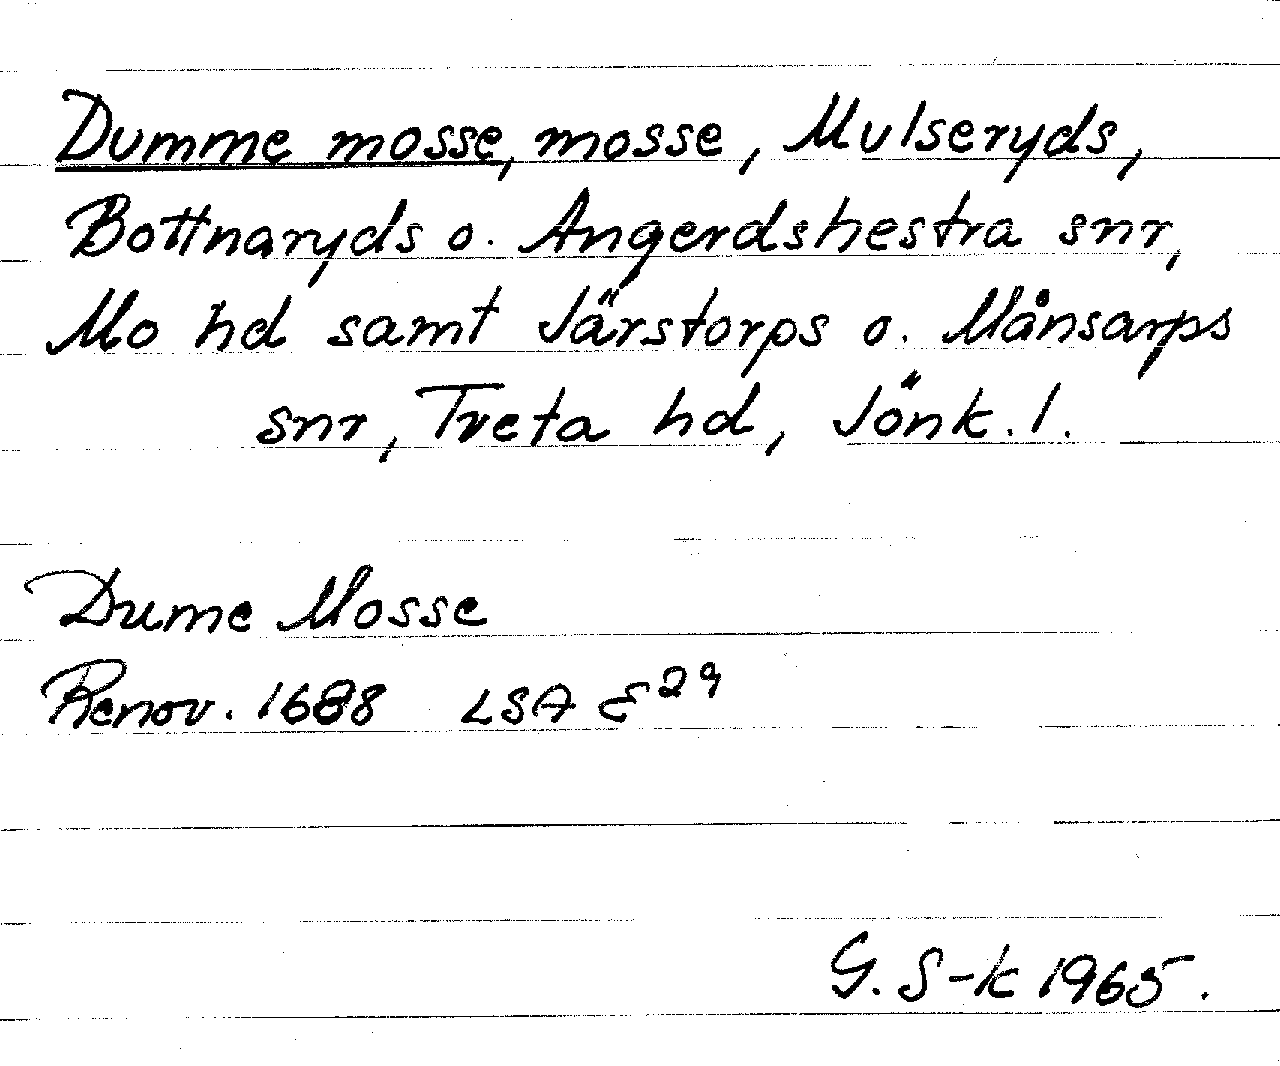 Dumme mosse, mosse, Mulseryds,
Bottnaryds o. Angerdshestra snr,
Mo hd samt Järstorps o. Månsarps
snr, Tveta hd, Jönk. l.
Dume Mosse
Renov. 1688 LSA E29
G. S-k 1965.